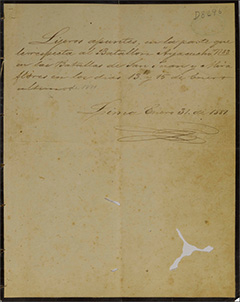 Ligeros apuntes, en la parte que
le respecta al Batallon Ayacucho Nº 83
en las Batallas de San Juan y Mira
flores en los dias 13 y 15 de Enero
Lima Enero 31 de